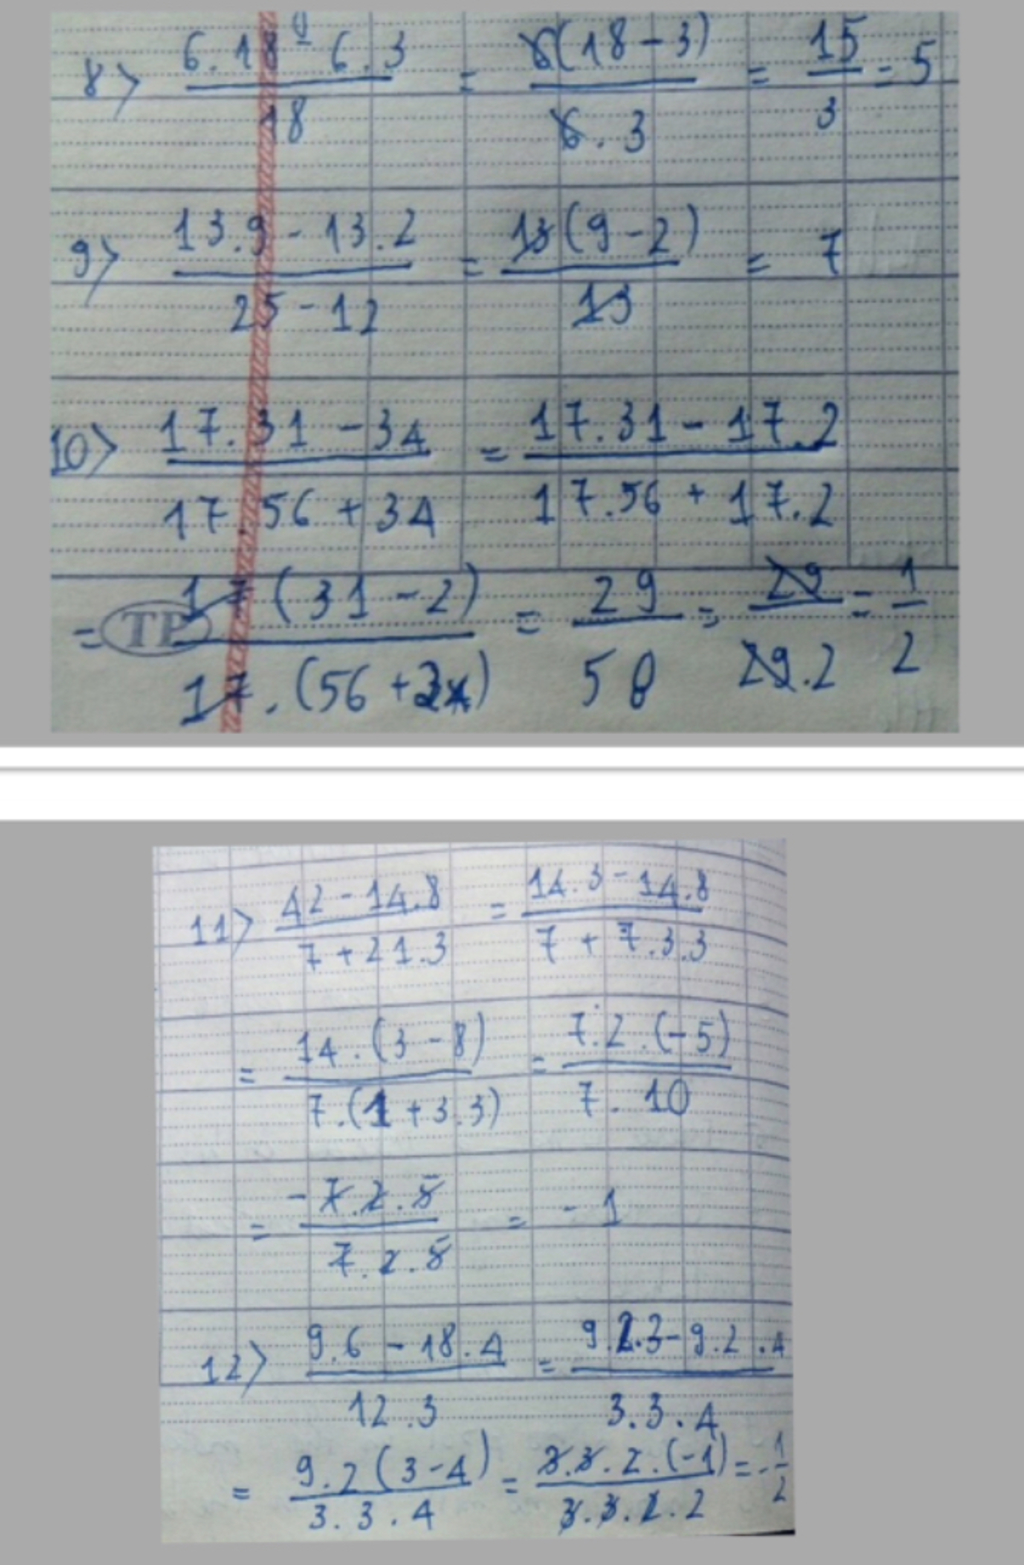 8> 6.18 - 6.3 / 18 = 6(18-3) / 6.3 = 15/3 = 5
9> 13.9 - 13.2 / 25-12 = 13(9-2) / 13 = 7
10> 17.31 - 34 / 17.56 + 34 = 17.31 - 17.2 / 17.56 + 17.2
TP
= 17(31-2) / 17.(56+2) = 29 / 58 = 29 / 29.2 = 1/2
11> 42 - 14.8 / 7+21.3 = 14.3 - 14.8 / 7 + 7.3.3
= 14.(3-8) / 7.(1+3.3) = 7.2.(-5) / 7.10
= -7.2.5 / 7.2.5 = -1
12> 9.6 - 18.4 / 12.3 = 9.2.3 - 9.2.4 / 3.3.4
= 9.2(3-4) / 3.3.4 = 3.3.2.(-1) / 3.3.2.2 = -1/2